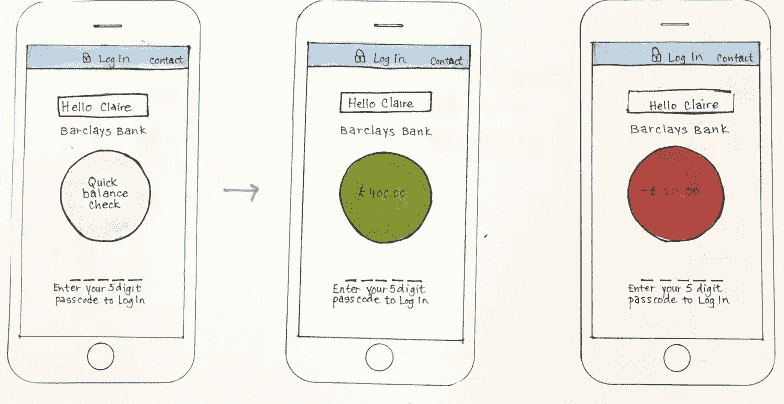 Log In Contact
Hello Claire
Barclays Bank
Quick
balance
check
Enter your 5 digit
passcode to Log In
Log In Contact
Hello Claire
Barclays Bank
£ 400.00
Enter your 5 digit
passcode to Log In
Log In Contact
Hello Claire
Barclays Bank
-£ 10.00
Enter your 5 digit
passcode to Log In